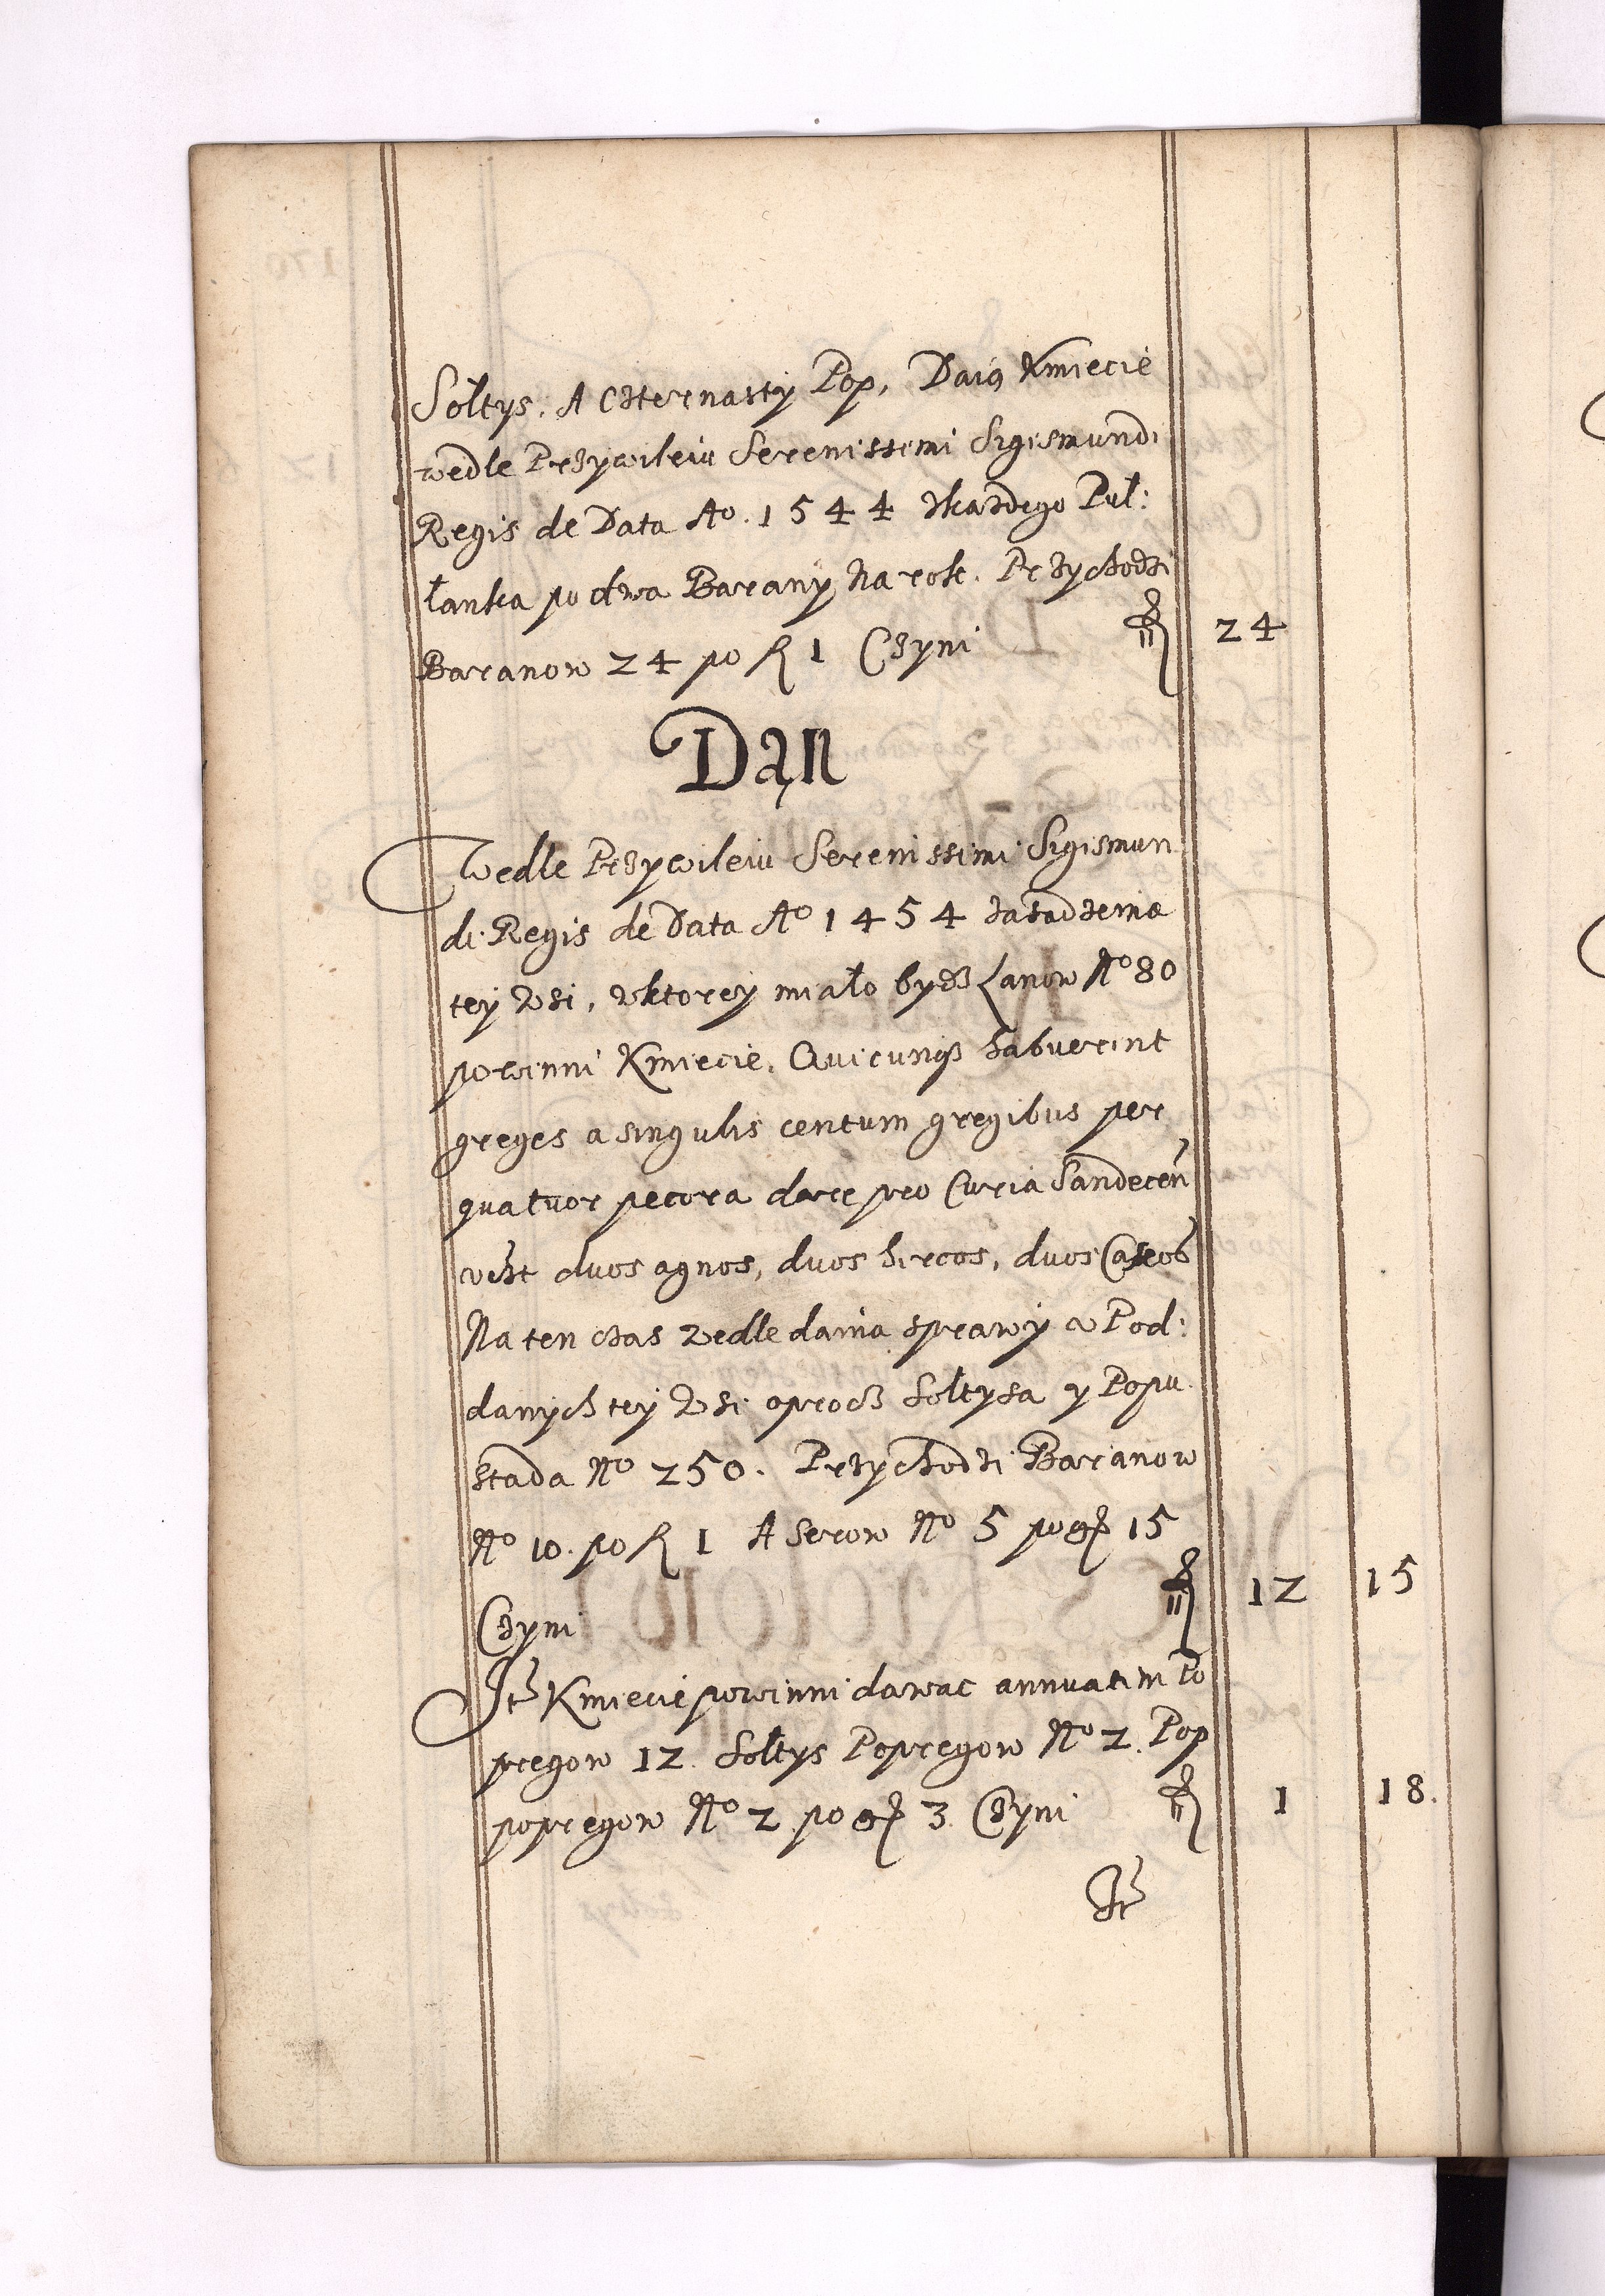 Sołtys. A Czternasty Pop, Daią Kmiecie
wedle Przywileiu Serenissimi Sigismundi
Regis de Data Ao. 1544 zkazdego Puł:
łanka po dwa Barany Na rok. Przychodzi
Baranow 24 po fl 1 Czyni fl 24
Dan
Wedle Przywileiu Serenissimi Sigismun
di Regis de Data Ao 1454 zasadzenia
tey Wsi, wktorey miało bydz Łanow No 80
powinni Kmiecie, Quicunq3 habuerint
greges a singulis centum gregibus per
quatuor pecora dare pro Curia Sandecen
vczt duos agnos, duos hircos, duos Caseos
Na ten czas wedle dania sprawy w Pod:
danych tey Wsi oprocz Sołtysa y Popu
stada No 250. Przychodzi Baranow
No 10. po fl 1 A Serow No 5 po gr 15
Czyni fl 12 15
Itē Kmiecie powinni dawac annuatim Po
pregow 12. Sołtys Popregow No 2. Pop
popregow No 2 po gr 3 Czyni fl 1 18.
Itē